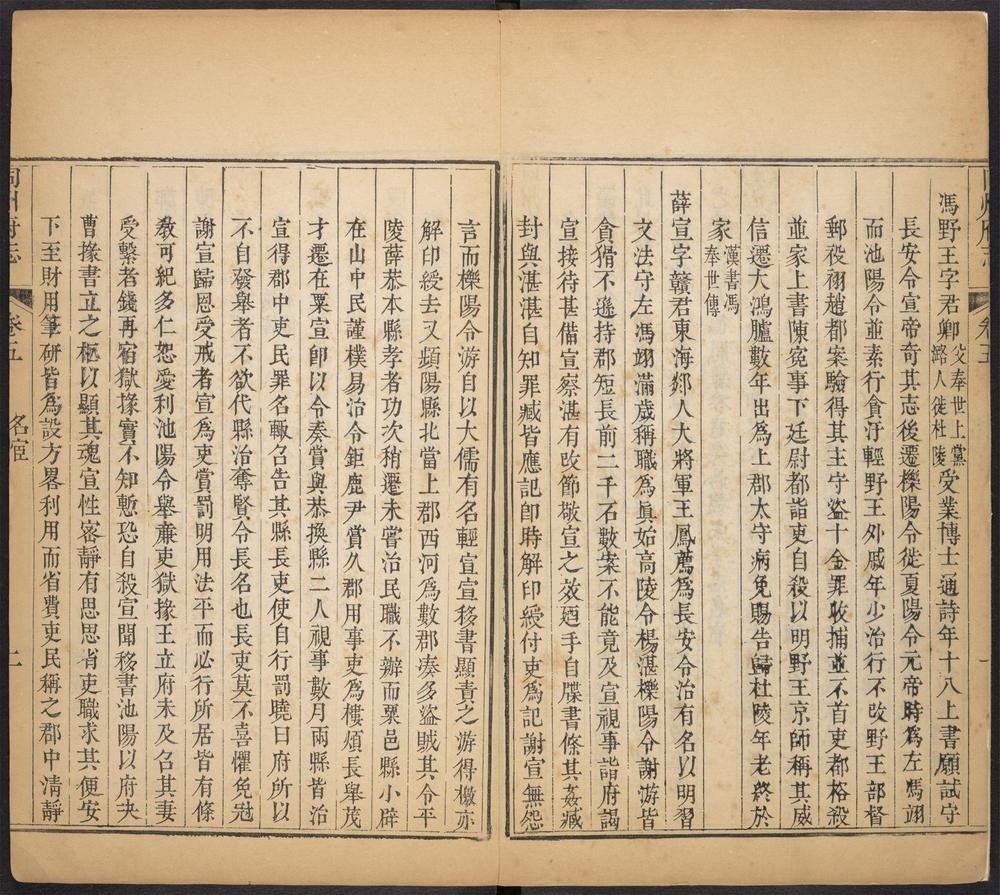 馮野王字君卿父奉世上黨潞人徙杜陵受業博士通詩年十八上書願試守
長安令宣帝奇其志後遷櫟陽令徙夏陽令元帝時爲左馮翊
而池陽令並素行貪汙輕野王外戚年少治行不改野王部督
郵掾祤趙都案驗得其主守盜十金罪收捕並不首吏都格殺
並家上書陳寃事下廷尉都詣吏自殺以明野王京師稱其威
信遷大鴻臚數年出爲上郡太守病免賜告歸杜陵年老終於
家漢書馮奉世傳
薛宣字贛君東海郯人大將軍王鳳薦爲長安令治有名以明習
文法守左馮翊滿歲稱職爲眞始高陵令楊湛櫟陽令謝游皆
貪猾不遜持郡短長前二千石數案不能竟及宣視事詣府謁
宣接待甚備宣察湛有改節敬宣之效廼手自牒書條其姦臧
封與湛湛自知罪臧皆應記卽時解印綬付吏爲記謝宣無怨
言而櫟陽令游自以大儒有名輕宣宣移書顯責之游得檄亦
解印綬去又頻陽縣北當上郡西河爲數郡凑多盜賊其令平
陵薛恭本縣孝者功次稍遷未嘗治民職不辦而粟邑縣小辟
在山中民謹樸易治令鉅鹿尹賞久郡用事吏爲樓煩長舉茂
才遷在粟宣卽以令奏賞與恭換縣二人視事數月兩縣皆治
宣得郡中吏民罪名輒召告其縣長吏使自行罰曉曰府所以
不自發舉者不欲代縣治奪賢令長名也長吏莫不喜懼免冠
謝宣歸恩受戒者宣爲吏賞罰明用法平而必行所居皆有條
敎可紀多仁恕愛利池陽令舉廉吏獄掾王立府未及召其妻
受繫者錢再宿獄掾實不知慙恐自殺宣聞移書池陽以府决
曹掾書立之柩以顯其魂宣性密靜有思思省吏職求其便安
下至財用筆研皆爲設方畧利用而省費吏民稱之郡中清靜
同州府志
卷五
名宦
二